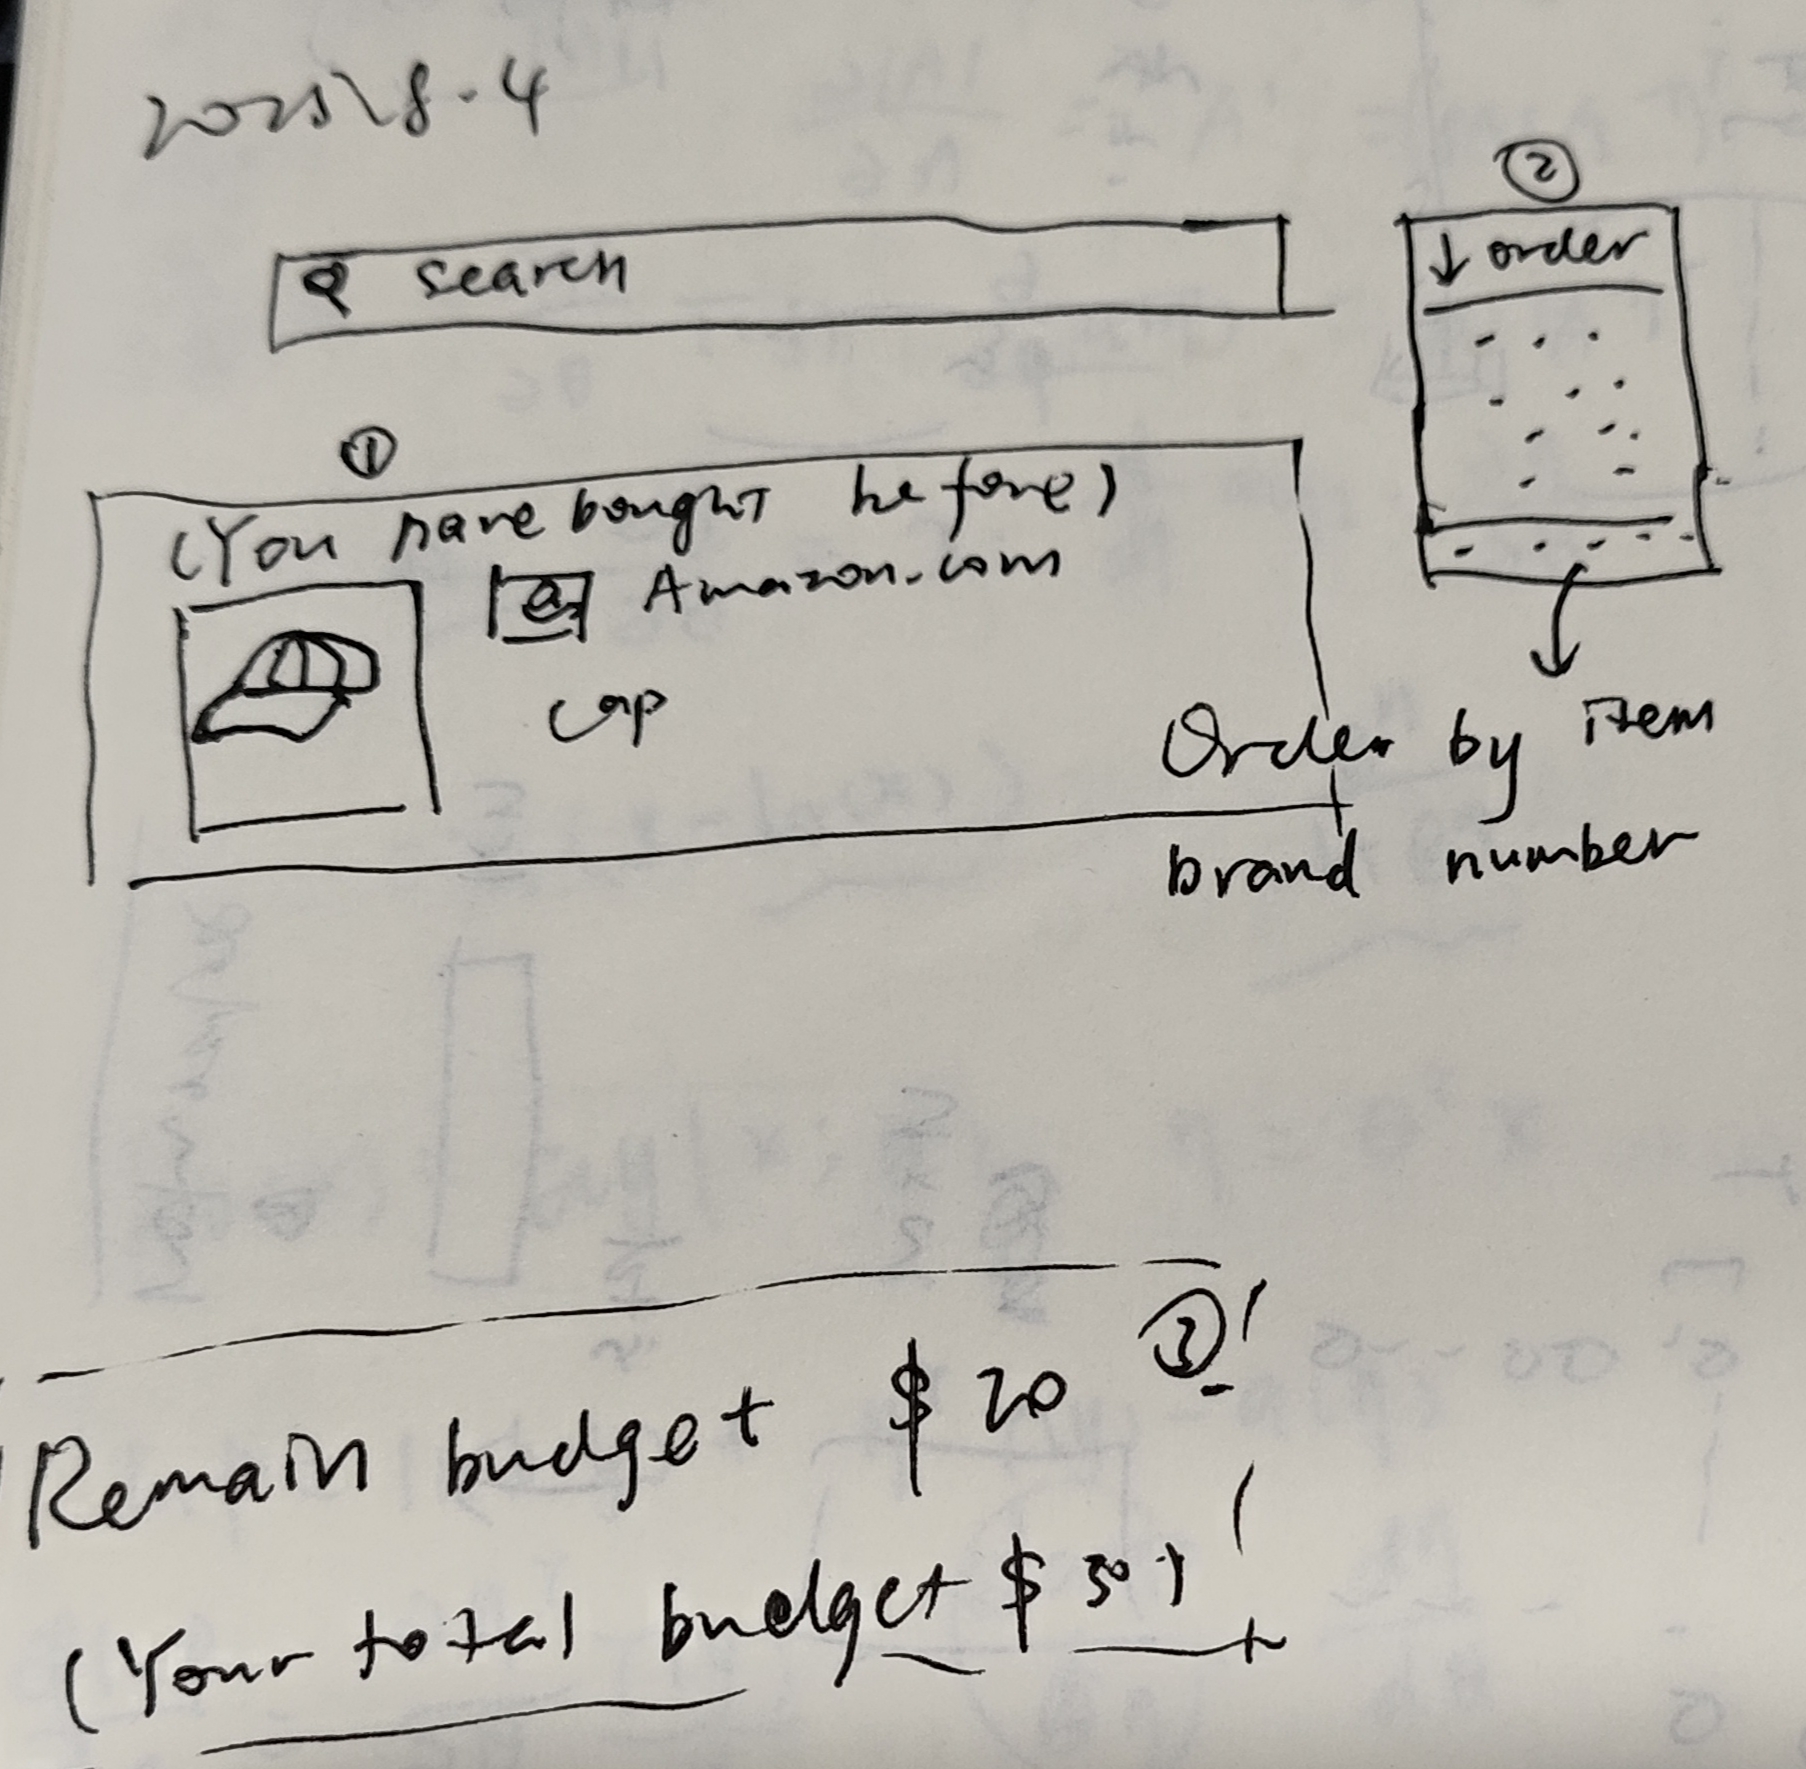 2025 8.4
②
search
↓ order
①
(You have bought before)
a Amazon.com
cap
Order by item
brand number
③
Remain budget $20
(Your total budget $30)